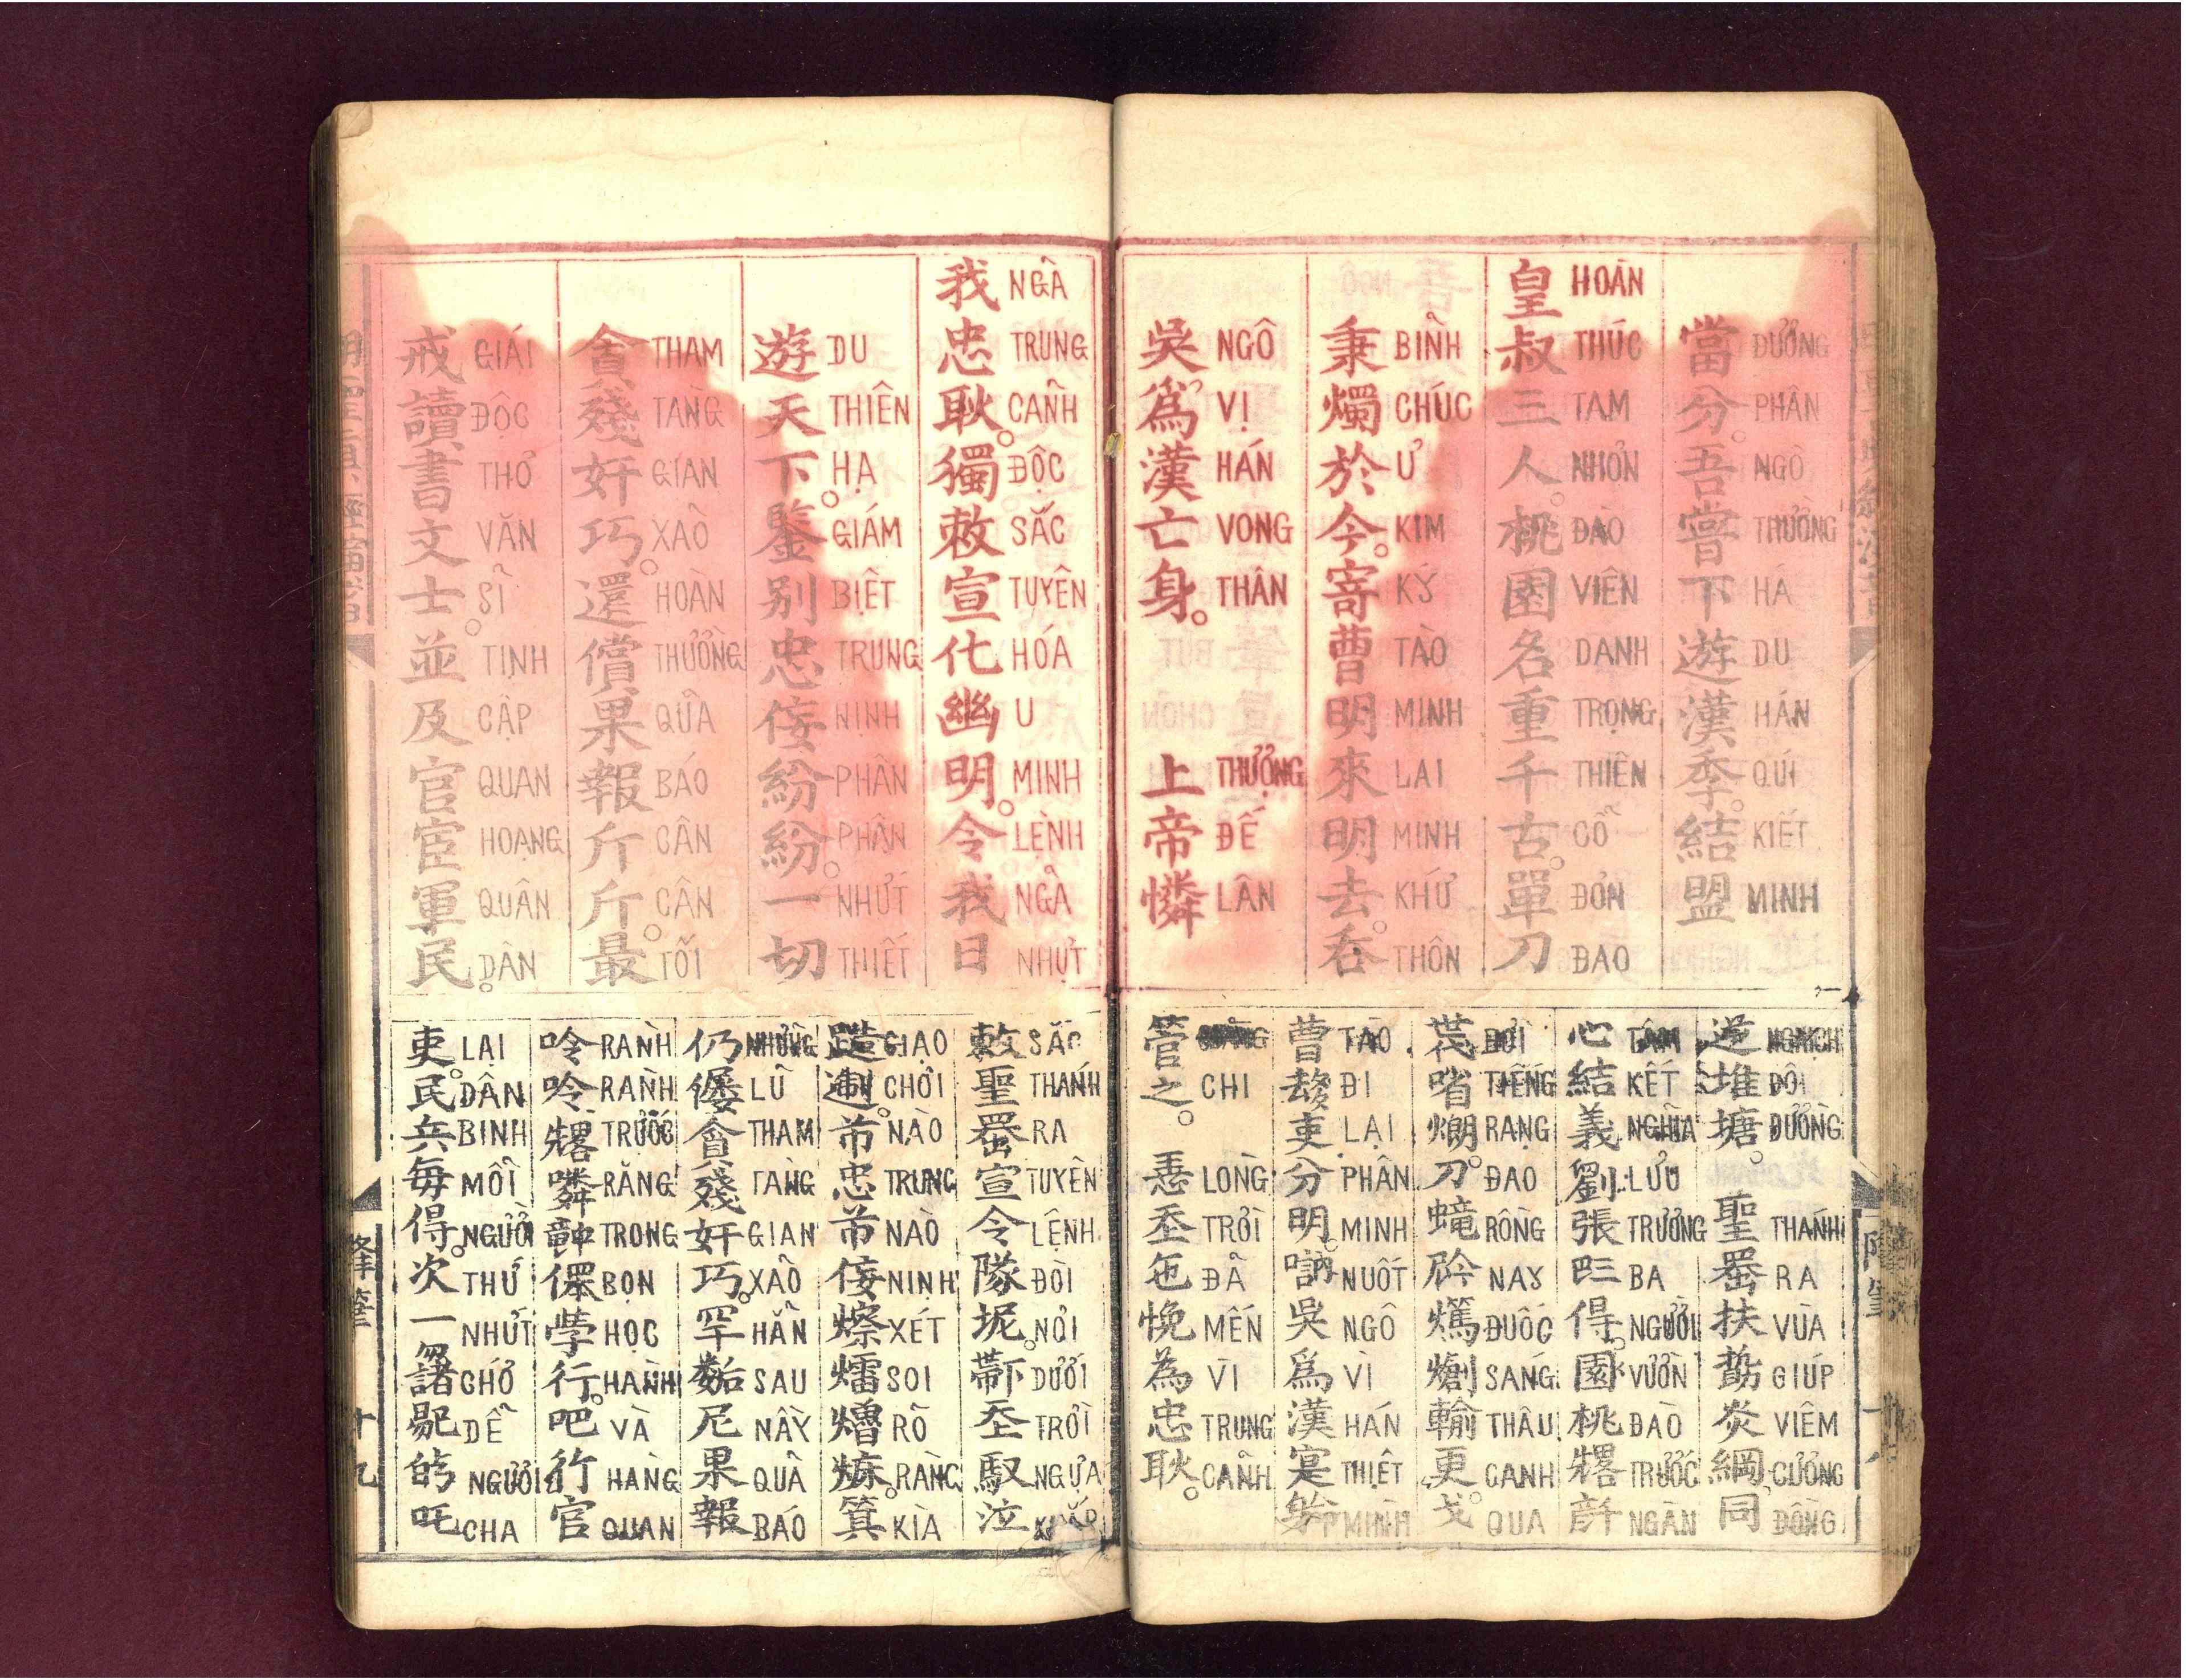 當分。吾嘗下遊漢季。結盟
ĐƯƠNG PHÂN NGÔ THƯỜNG HÁ DU HÁN QUÍ KIẾT MINH
皇叔三人。桃園名重千古。單刀
HOÀN THÚC TAM NHƠN ĐÀO VIÊN DANH TRỌNG THIÊN CỔ ĐƠN ĐAO
秉燭於今。寄曹明來明去。吞
BỈNH CHÚC Ư KIM KÝ TÀO MINH LAI MINH KHỨ THÔN
吳為漢亡身。上帝憐
NGÔ VỊ HÁN VONG THÂN THƯỢNG ĐẾ LÂN
逆堆塘。聖𠚢扶𠢞炎綱同
NGHỊCH ĐÔI ĐƯỜNG THÁNH RA VÙA GIÚP VIÊM CƯỜNG ĐỒNG
心結義劉張𠀧得。園桃𠓀𠦳
TÂM KẾT NGHĨA LƯU TRƯƠNG BA NGƯỜI VƯỜN ĐÀO TRƯỚC NGÀN
ĐỜI TIẾNG RẠNG ĐAO RỒNG NAY ĐUỐC SÁNG THÂU CANH QUA
曹𠫾吏分明。吶吳爲漢寔躮
TÀO ĐI LẠI PHÂN MINH NUỐT NGÔ VÌ HÁN THIỆT MÌNH
管之。𢚸𡗶㐌悗為忠耿。
CHI LÒNG TRỜI ĐÃ MẾN VÌ TRUNG CẢNH
我忠耿。獨敕宣化幽明。令我日
NGÃ TRUNG CẢNH ĐỘC SẮC TUYÊN HÓA U MINH LỆNH NGÃ NHỰT
遊天下。鑒別忠佞紛紛。一切
DU THIÊN HẠ GIÁM BIỆT TRUNG NỊNH PHÂN PHÂN NHỨT THIẾT
貪殘奸巧。還償果報斤斤。最
THAM TÀNG GIAN XẢO HOÀN THƯỜNG QUẢ BÁO CÂN CÂN TỐI
戒讀書文士。並及官宦軍民。
GIÁI ĐỘC THƠ VĂN SĨ TỊNH CẬP QUAN HOẠNG QUÂN DÂN
敕聖𠚢宣令隊坭。𠁑𡗶馭泣
SẮC THÁNH RA TUYÊN LỆNH ĐÒI NƠI DƯỚI TRỜI NGỰA
GIẠO CHƠI NÀO TRUNG NÀO NỊNH XÉT SOI RÕ RÀNG KÌA
仍僂貪殘奸巧。罕𡢐尼果報
NHỮNG LŨ THAM TÀNG GIAN XẢO HẲN SAU NẦY QUẢ BÁO
呤呤𠓀嶙𥪝倮學行。吧行官
RÀNH RÀNH TRƯỚC RĂNG TRONG BỌN HỌC HÀNH VÀ HÀNG QUAN
吏。民兵每得。次一
LẠI DÂN BINH MỖI NGƯỜI THỨ NHỨT CHỚ DỄ NGƯƠI CHA
十九